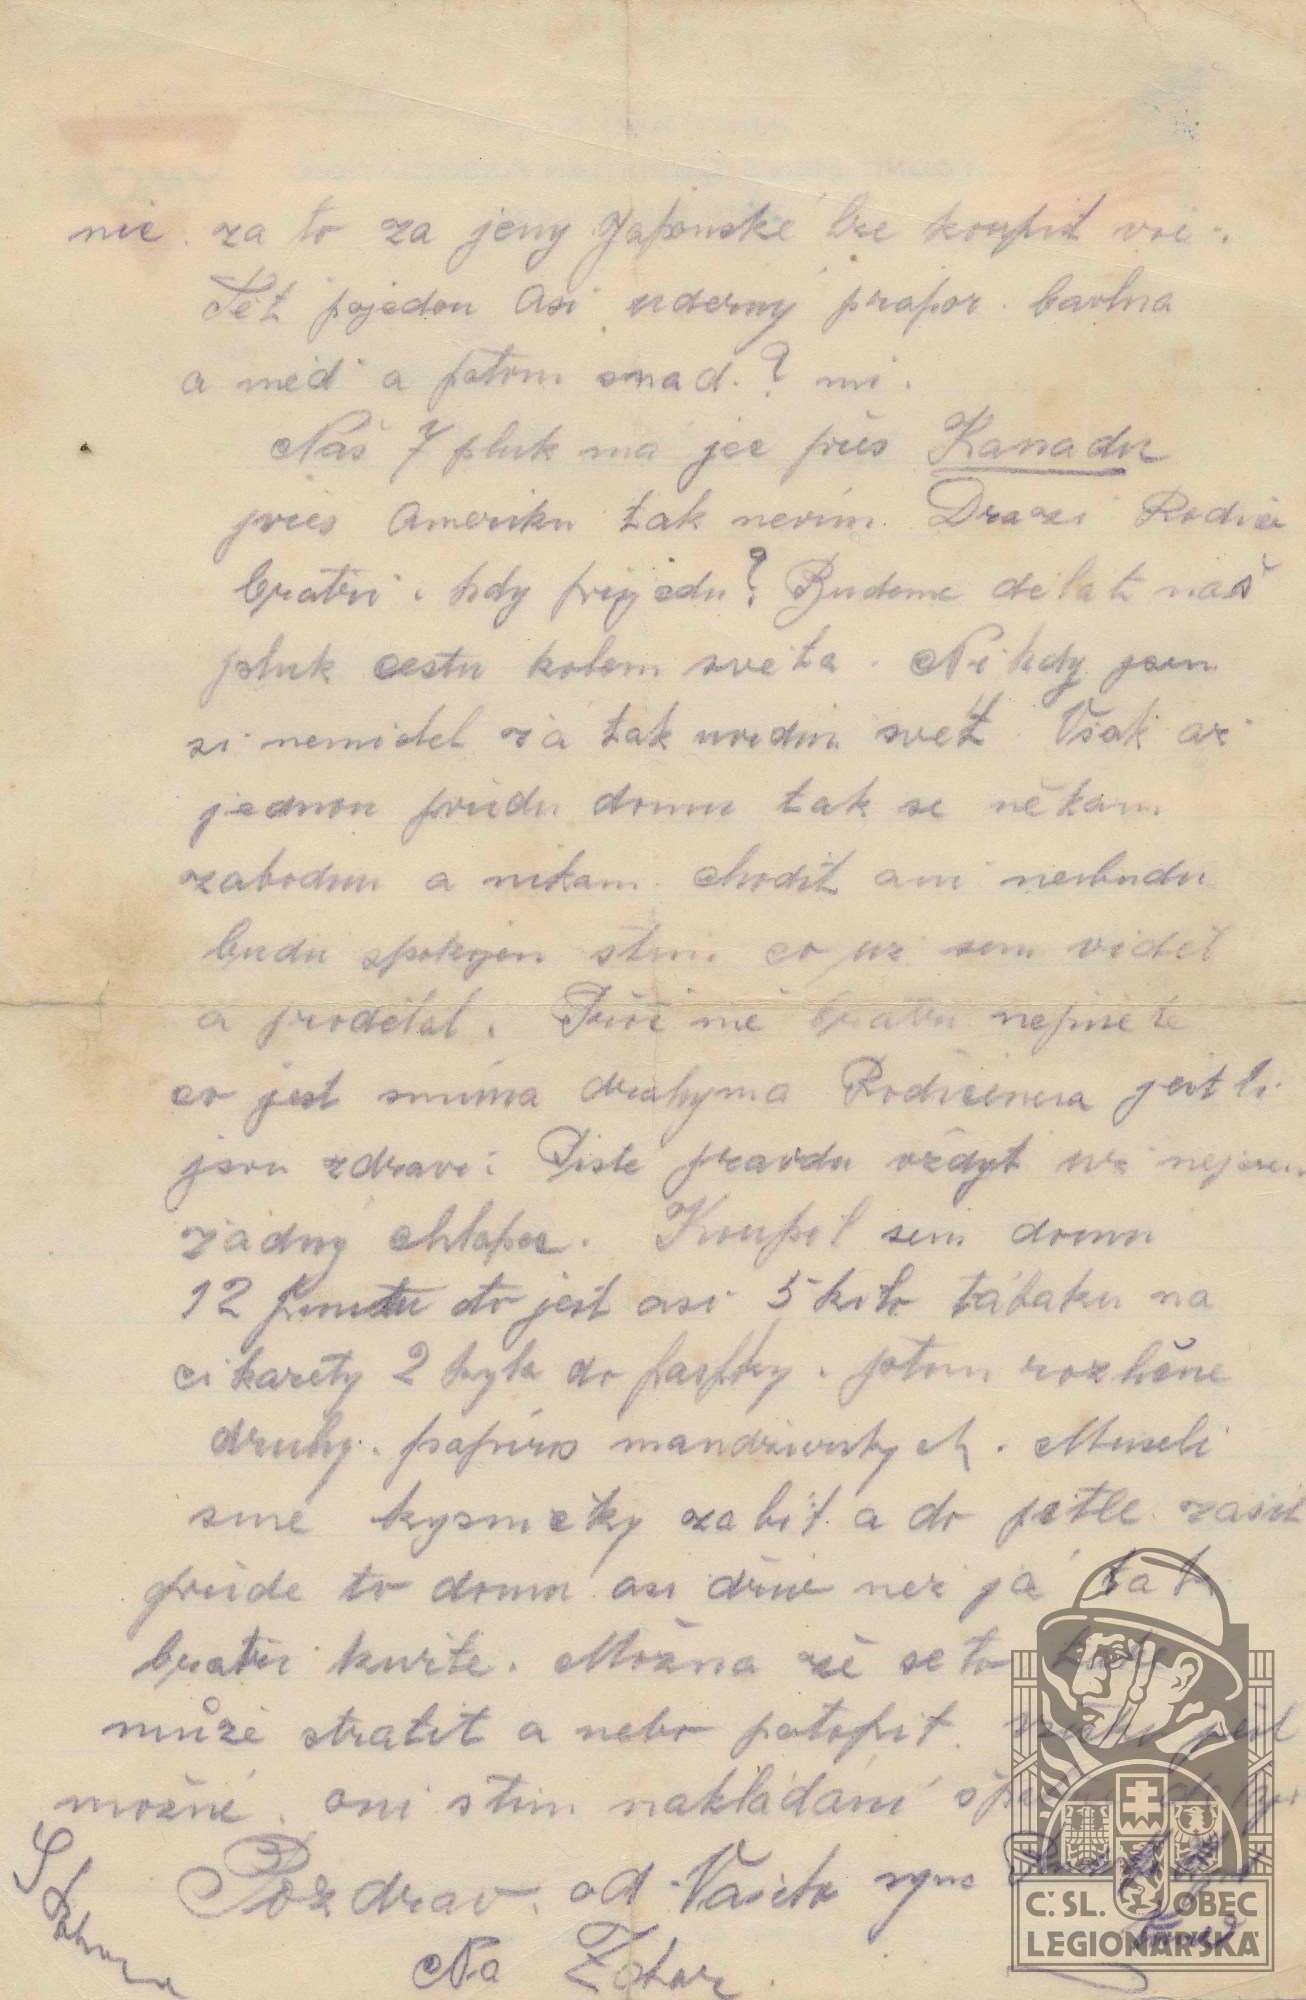 nic za to za jeny Japonské lze koupit vše.
Teť pojedou asi uderný prapor bavlna
a měď a potom snad.? mi.
Náš 7 pluk má jec přes Kanadu
přes Ameriku tak nevím. Drazí Rodiče
bratři. kdy přijedu? Budeme dělat náš
pluk cestu kolem světa. Nikdy jsem
si nemislel že já tak uvidim svět. Však až
jednou přídu domu tak se někam
zabodnu a nikam chodit ani nebudu
budu spokojen stim co už sem viděl
a prodělal. Proč mě bratři nepíšete
co jest snima drahyma Rodičema jestli
jsou zdravi. Piste pravdu vždyt už nejsem
žádný chlapec. Koupil sem domu
12 funtu to jest asi 5 kilo tábaku na
cikarety 2 kyla do fajfky. potom rozličné
druhy. papíros mandžurskych. Museli
sme kysničky zabít a do petle zašít
příde to domu asi dřiv než já tak
bratři kuřte. Možna že se to
může stratit a nebo potopit. všecko jest
možné. oni stim nakládání
Pozdrav. od Vašeho syna
Na Zdar.
S Bohem
C.SL. OBEC
LEGIONÁŘSKÁ